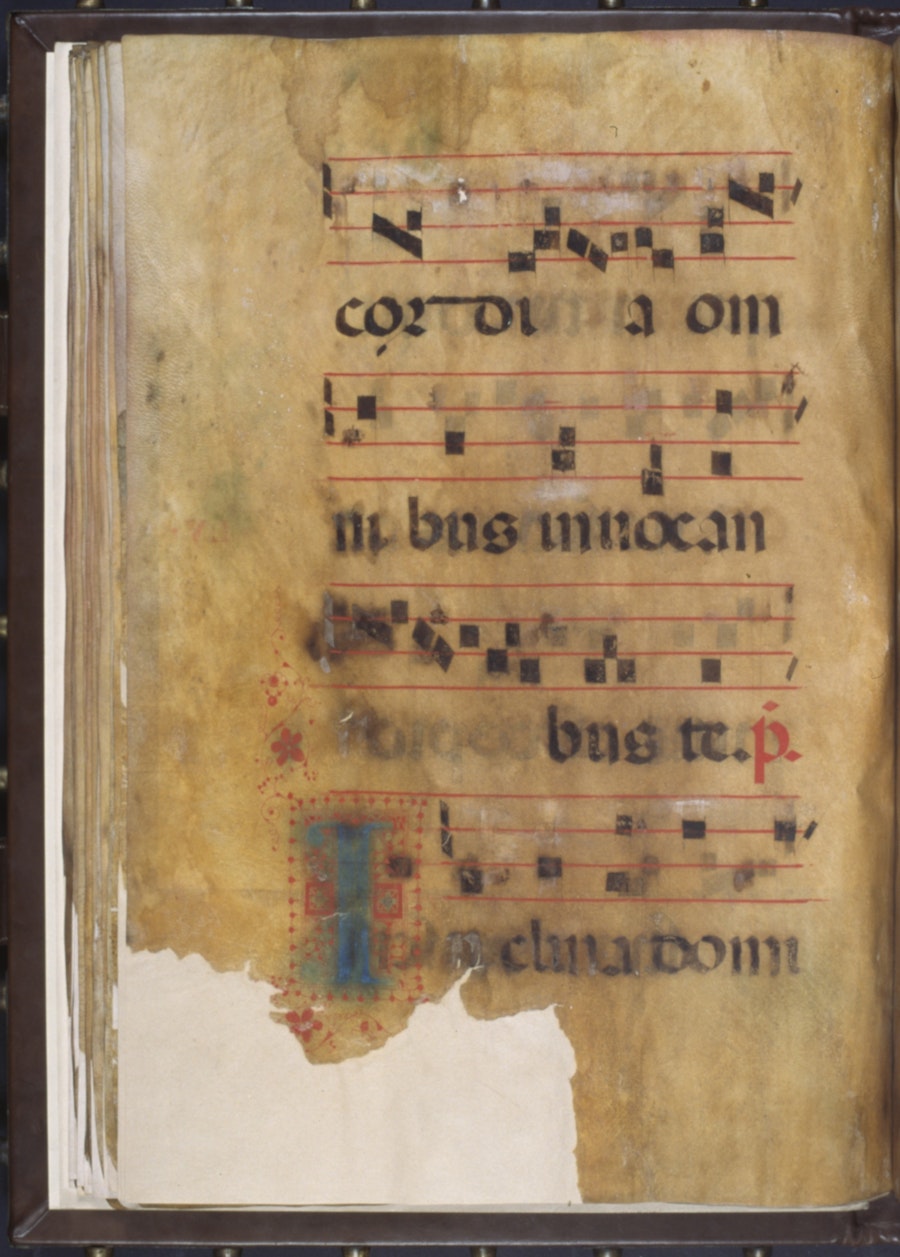 cor di a om
ni bus inuocan
bus te. p̄.
In clina domi